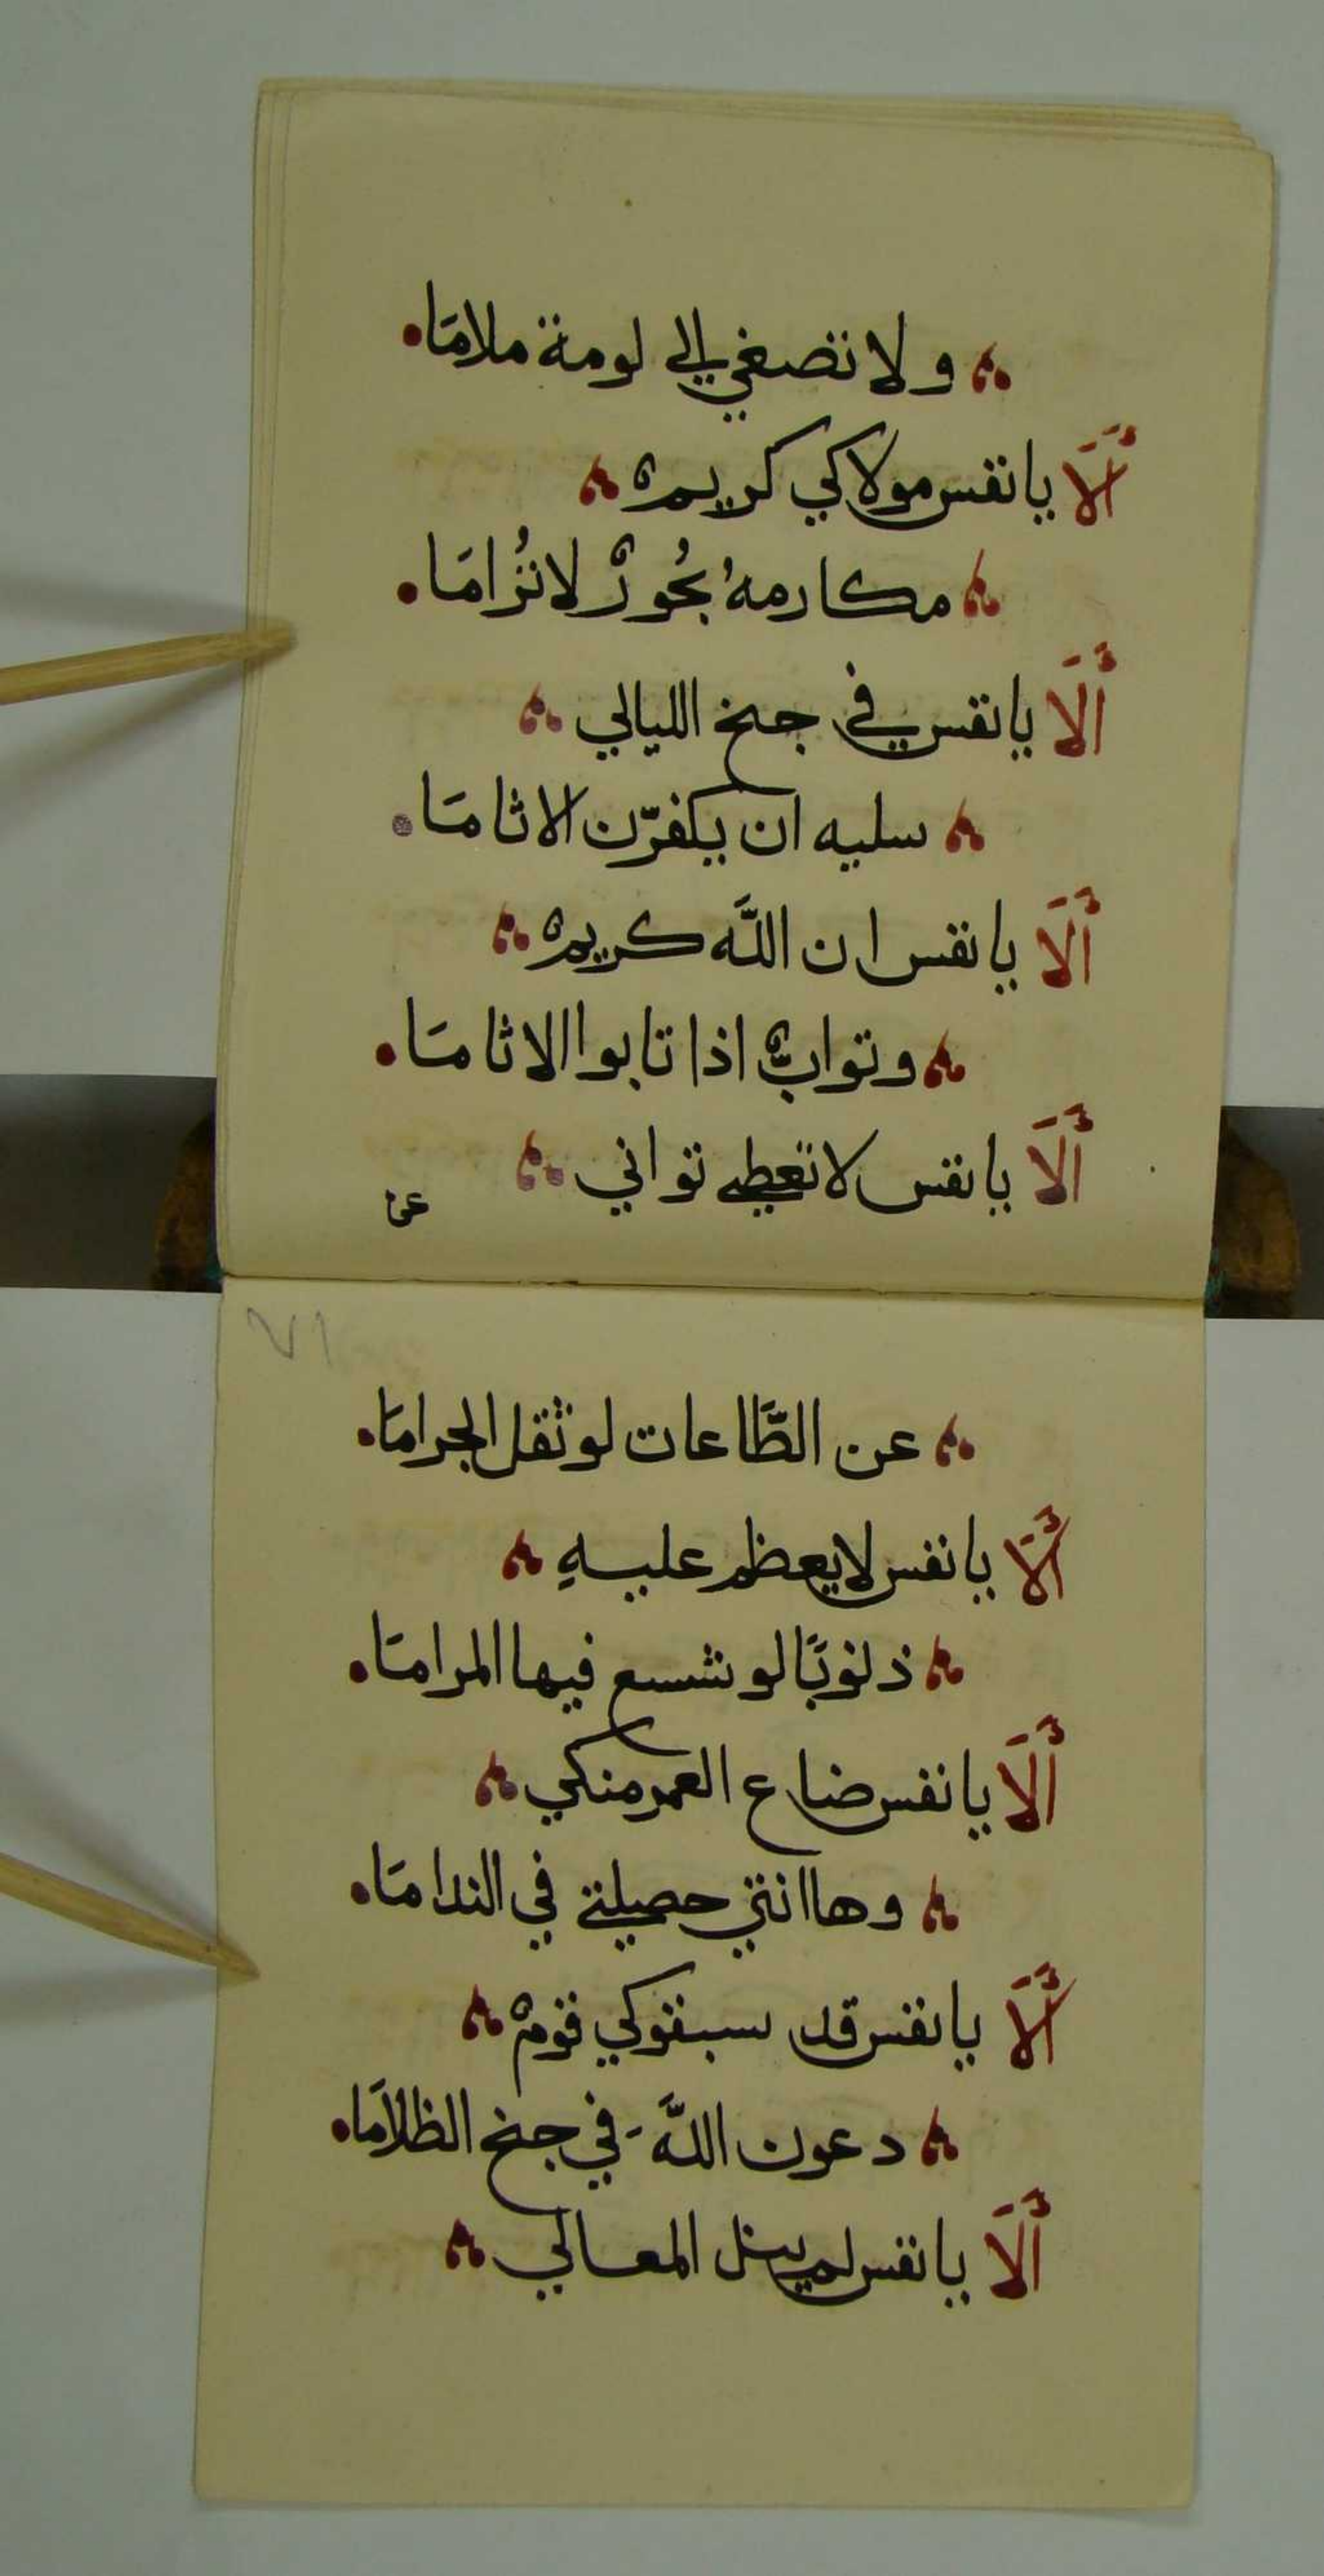 ولا تصغي الي لومة ملامَا
أَلَا يا نفس مولاكي كريمٌ
مكارمهُ بحُورٌ لا تُرامَا
أَلَا يا نفس في جنح الليالي
سليه ان يكفّرن الاثامَا
أَلَا يا نفس ان اللَّه كريمٌ
وتوابٌ اذا تابوا الاثامَا
أَلَا يا نفس لا تعطي تواني
عن
٧١
عن الطَّاعات لو ثقل الجرامَا
أَلَا يا نفس لا يعظم عليهِ
ذنوبًا لو شسع فيها المرامَا
أَلَا يا نفس ضاع العمر منكي
وها انتي حصيلتي في الندامَا
أَلَا يا نفس قد سبقوكي قومٌ
دعون اللَّهَ في جنح الظلامَا
أَلَا يا نفس لم ينل المعالي